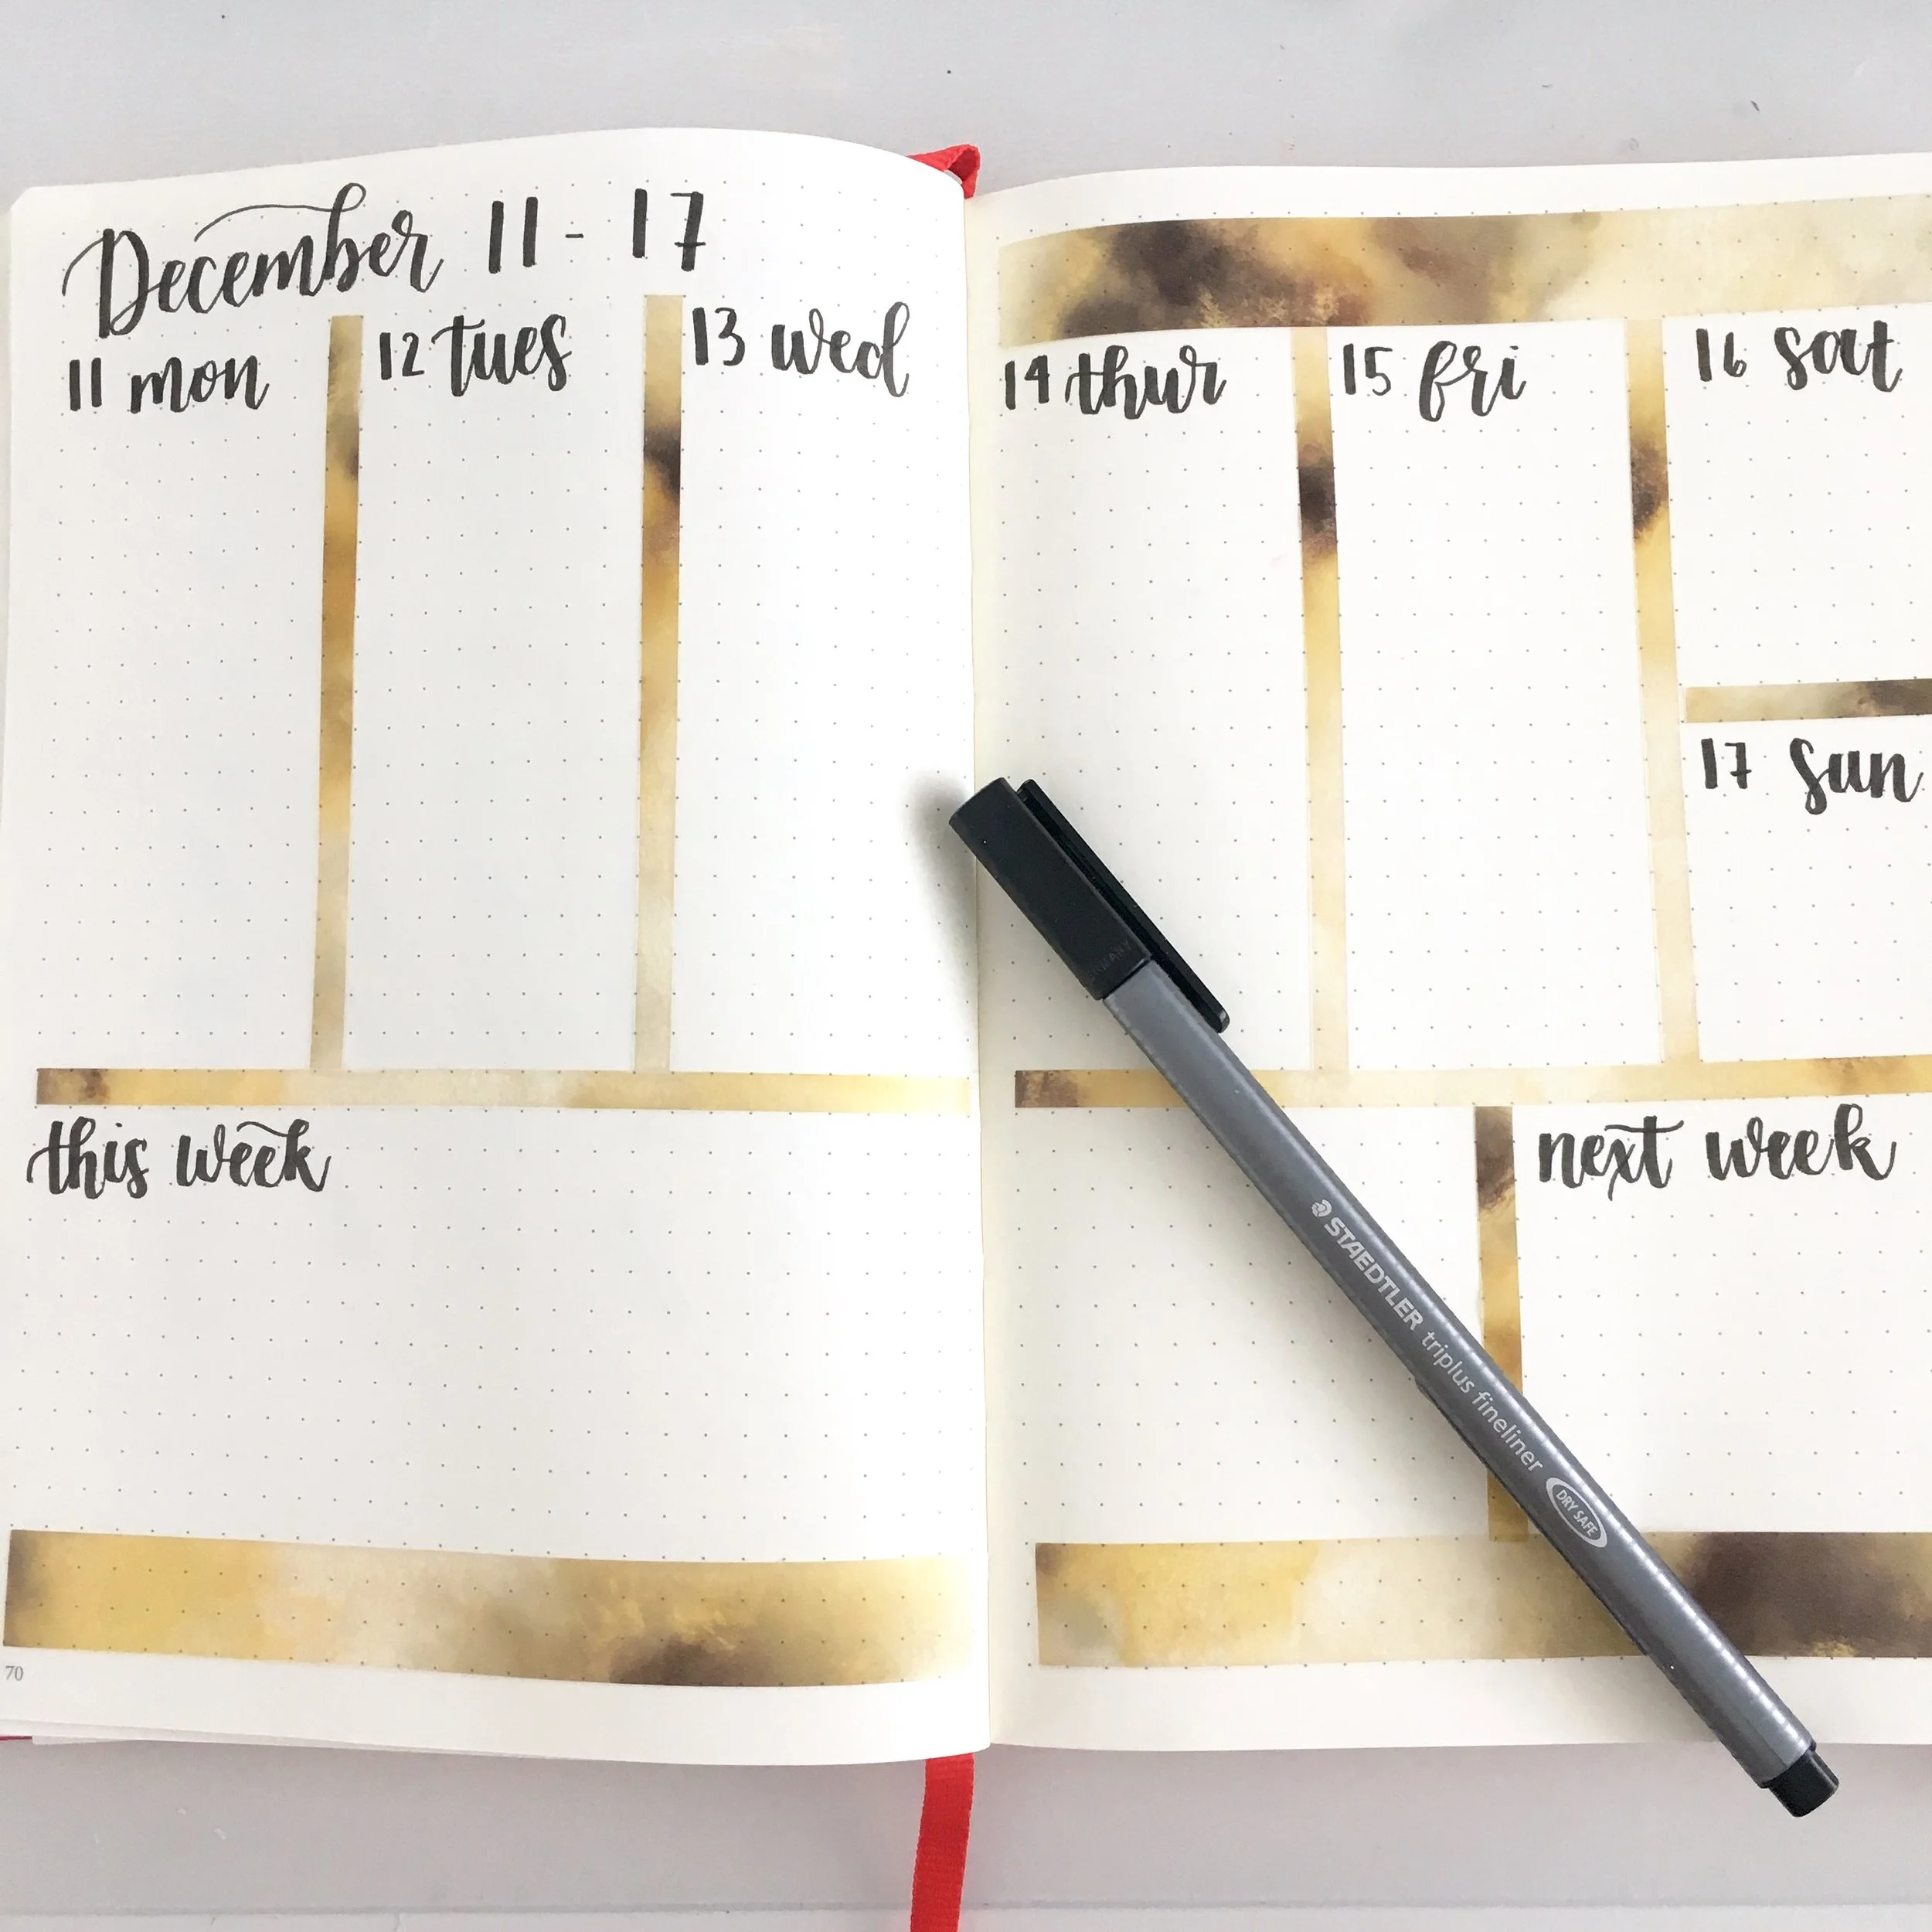 December 11 - 17
11 mon
12 tues
13 wed
this week
70
14 thur
15 fri
16 sat
17 sun
next week
STAEDTLER triplus fineliner DRY SAFE